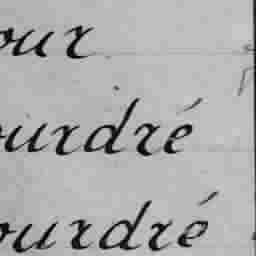 our
ourdré
ourdré